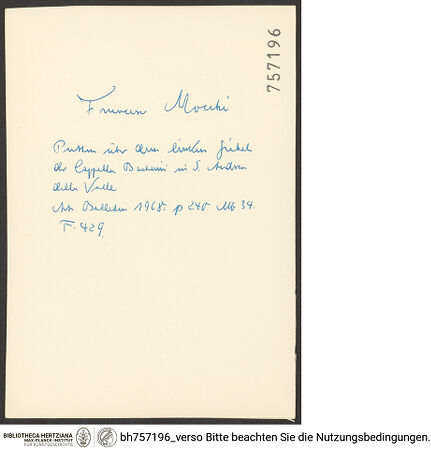 757196
Francesco Mochi
Putten über dem linken Giebel
der Cappella Barberini in S. Andrea
della Valle
Art Bulletin 1968. p 240 Abb 34.
F. 429
BIBLIOTHECA HERTZIANA
MAX-PLANCK-INSTITUT
FÜR KUNSTGESCHICHTE
bh757196_verso Bitte beachten Sie die Nutzungsbedingungen.